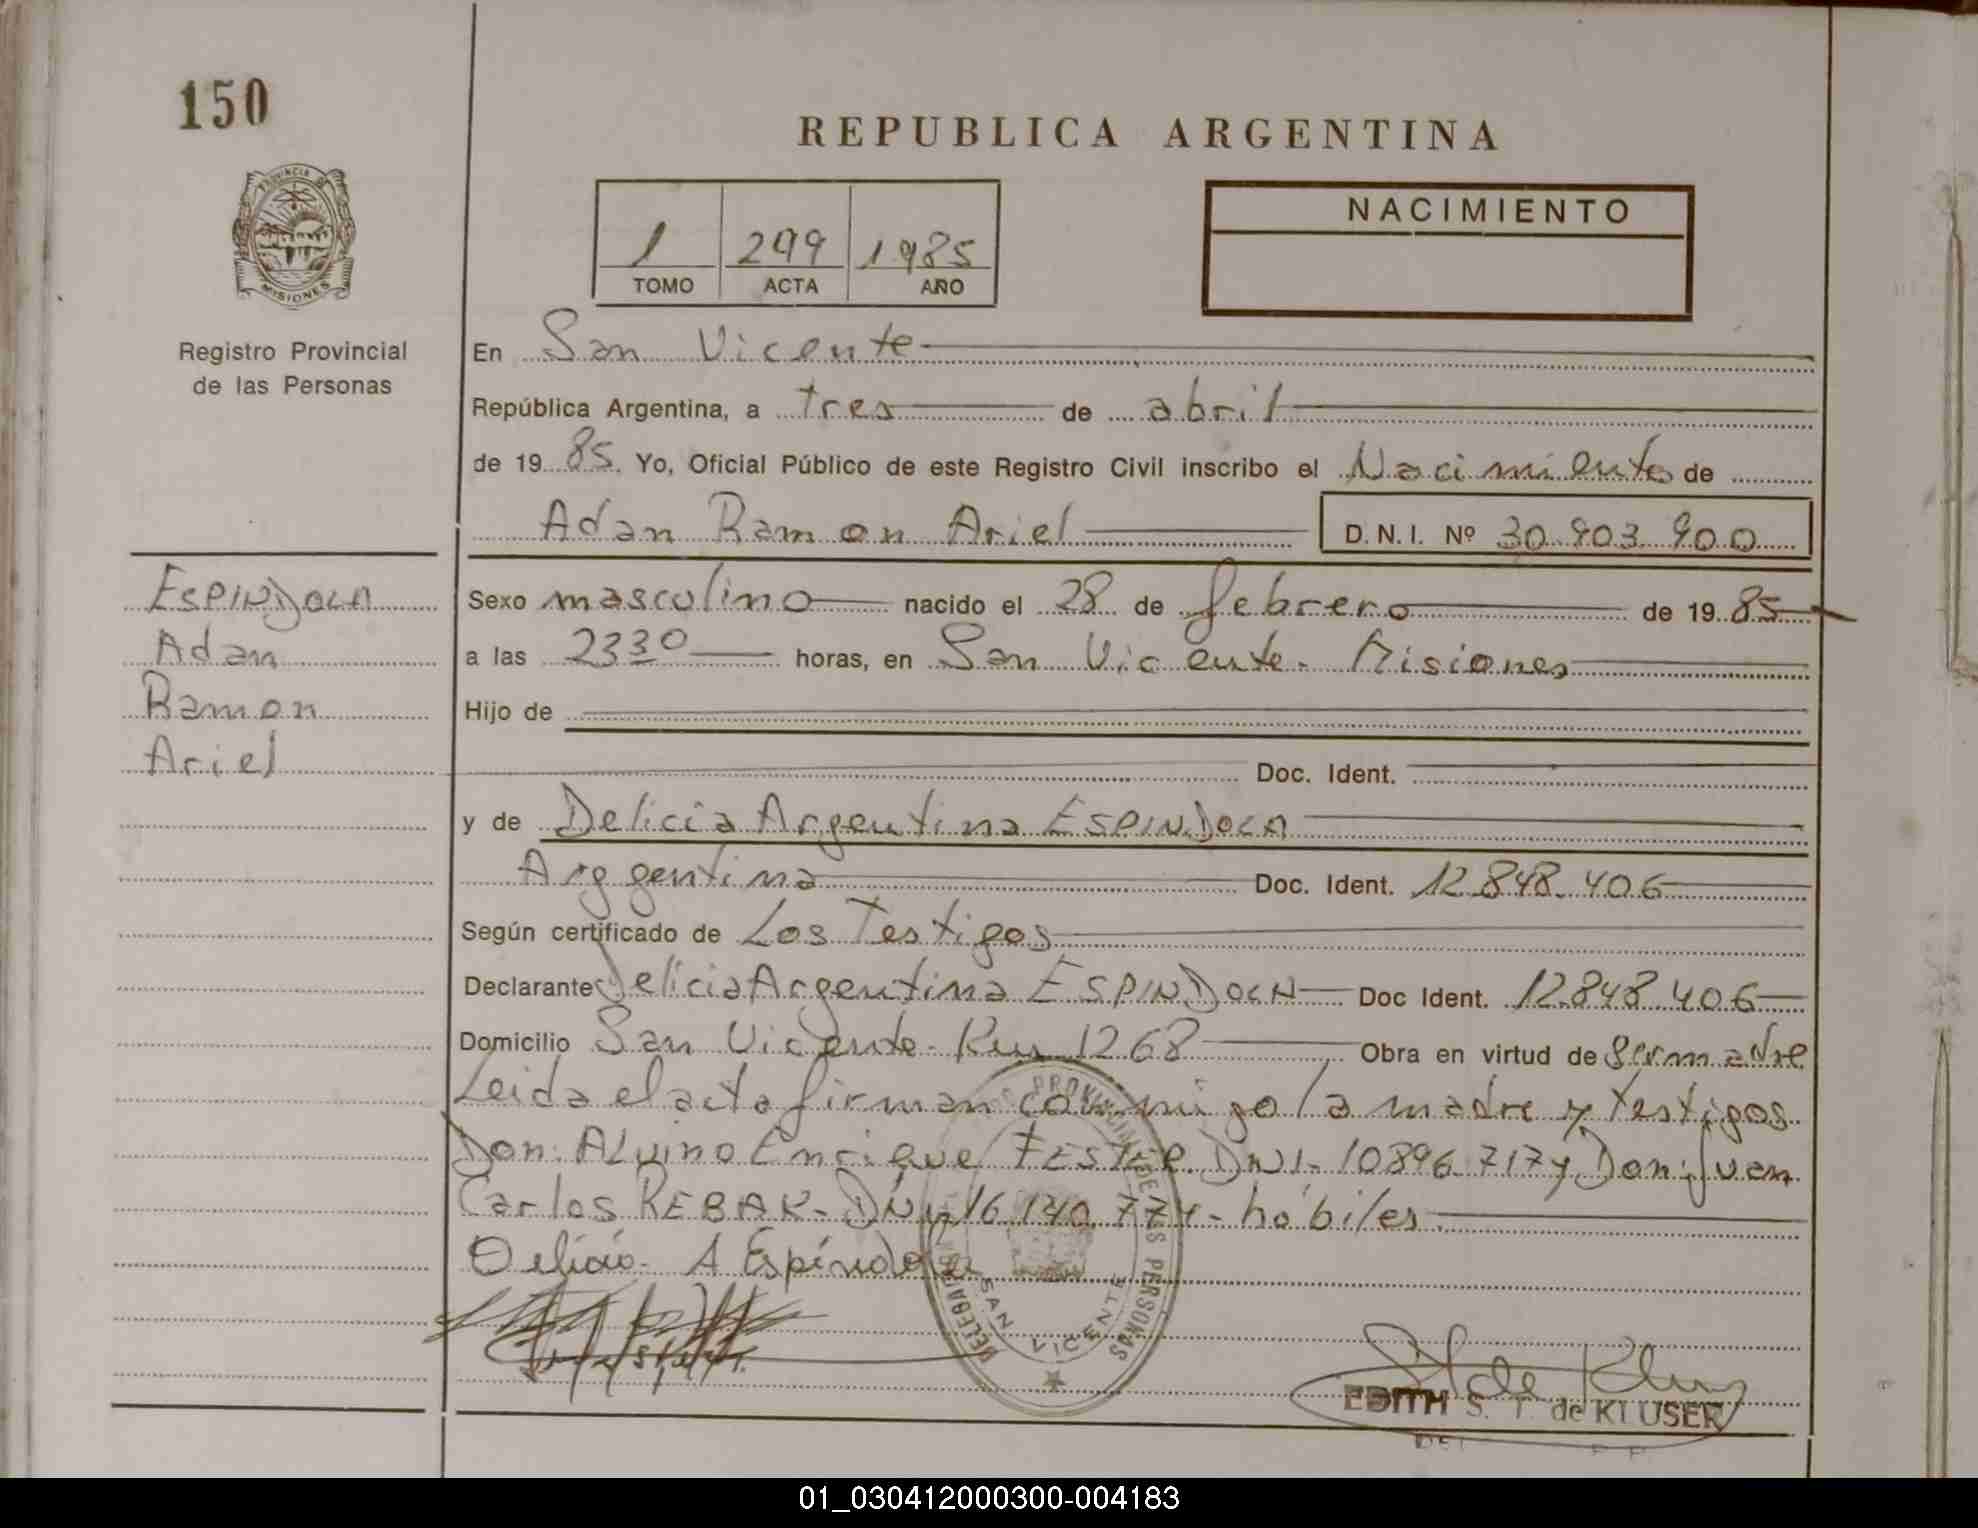 150
REPUBLICA ARGENTINA
PROVINCIA DE
MISIONES
Registro Provincial
de las Personas
1 299 1985
TOMO ACTA AÑO
NACIMIENTO
En San Vicente
República Argentina, a tres de abril
de 19 85. Yo, Oficial Público de este Registro Civil inscribo el Nacimiento de
Adan Ramon Ariel D.N.I. Nº 30.903.900
ESPINDOLA
Adan
Ramon
Ariel
Sexo masculino nacido el 28 de febrero de 19 85
a las 2330 horas, en San Vicente. Misiones
Hijo de
Doc. Ident.
y de Delicia Argentina ESPINDOLA
Arggentina Doc. Ident. 12.848.406
Según certificado de Los Testigos
Declarante Delicia Argentina ESPINDOLA Doc Ident. 12.848.406
Domicilio San Vicente. 1268 Obra en virtud de ser madre
Leida el acta firman conmigo la madre y testigos
Don: Alvino Enrique TESTER. DNI. 10896 717 y Don: Juan
Carlos REBAK. DNI 16.140.774 - hábiles
Delicia. A Espíndola
DELEGA PROVINCIAL DE LAS PERSONAS
SAN VICENTE
EDITH S. T. de KLUSER
01_030412000300-004183